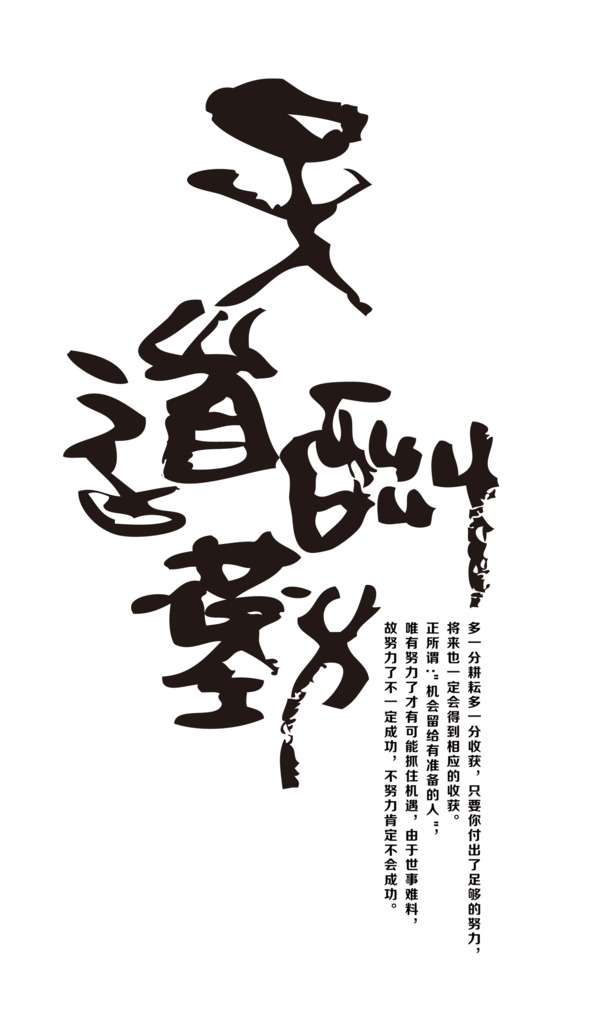 天道酬勤
多一分耕耘多一分收获，只要你付出了足够的努力，
将来也一定会得到相应的收获。
正所谓："机会留给有准备的人"，
唯有努力了才有可能抓住机遇，由于世事难料，
故努力了不一定成功，不努力肯定不会成功。